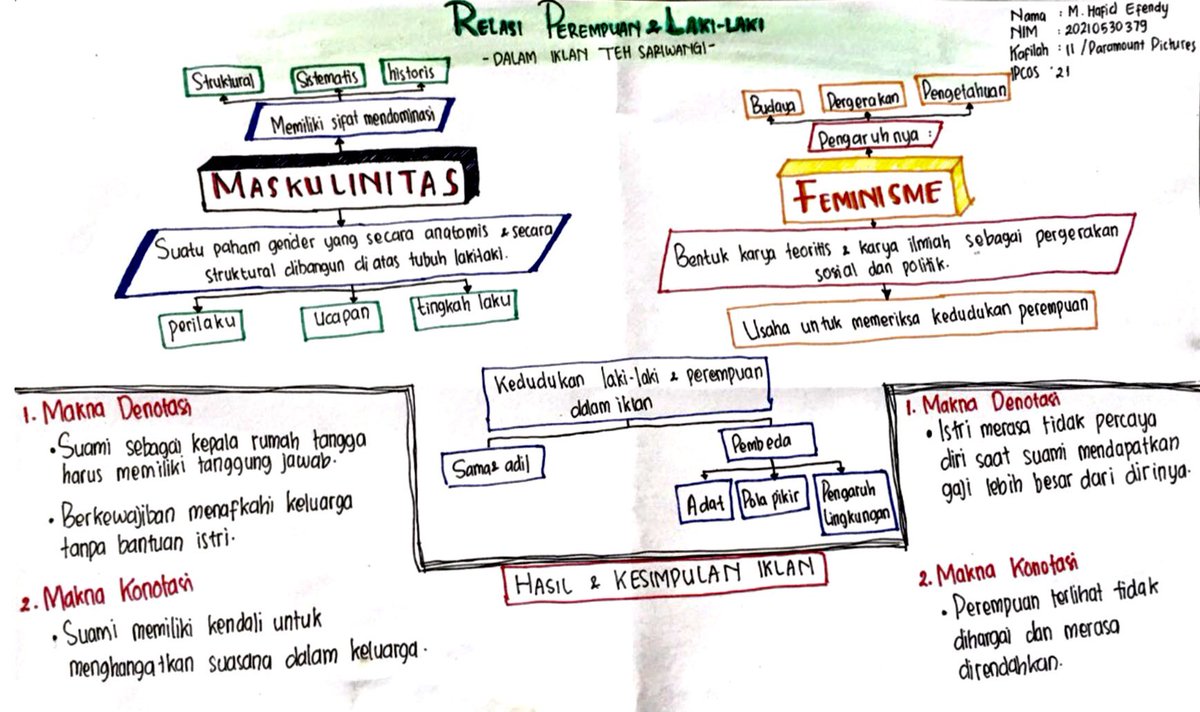 RELASI PEREMPUAN & LAKI-LAKI
- DALAM IKLAN TEH SARIWANGI -
Nama : M. Hafid Efendy
NIM : 20210530379
Kafilah : 11 / Paramount Pictures
IPCOS '21
Struktural
Sistematis
historis
Memiliki sifat mendominasi
MASKULINITAS
Suatu paham gender yang secara anatomis & secara
struktural dibangun di atas tubuh laki-laki.
perilaku
Ucapan
tingkah laku
Budaya
Pergerakan
Pengetahuan
Pengaruhnya :
FEMINISME
Bentuk karya teoritis & karya ilmiah sebagai pergerakan
sosial dan politik.
Usaha untuk memeriksa kedudukan perempuan
Kedudukan laki-laki & perempuan
dalam iklan
Sama & adil
Pembeda
Adat
Pola pikir
Pengaruh
Lingkungan
HASIL & KESIMPULAN IKLAN
1. Makna Denotasi
• Suami sebagai kepala rumah tangga
harus memiliki tanggung jawab.
• Berkewajiban menafkahi keluarga
tanpa bantuan istri.
2. Makna Konotasi
• Suami memiliki kendali untuk
menghangatkan suasana dalam keluarga.
1. Makna Denotasi
• Istri merasa tidak percaya
diri saat suami mendapatkan
gaji lebih besar dari dirinya.
2. Makna Konotasi
• Perempuan terlihat tidak
dihargai dan merasa
direndahkan.